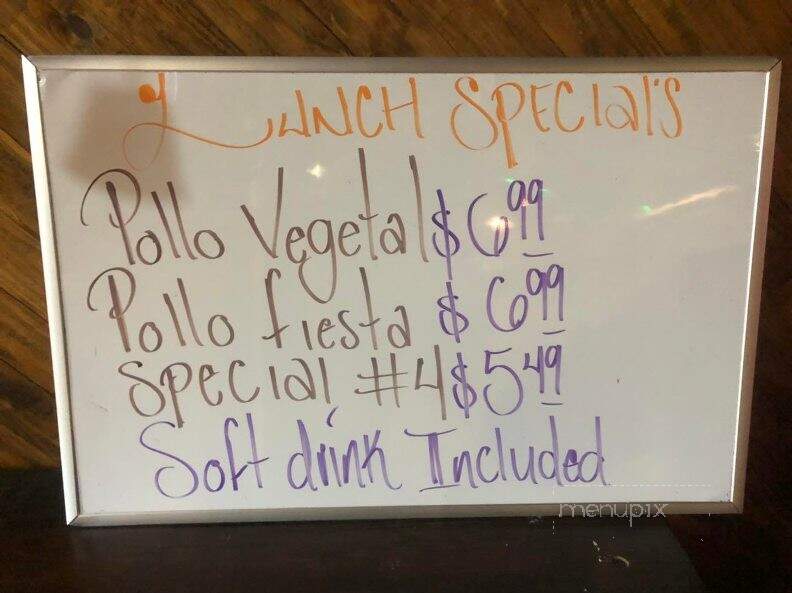 Lunch Special's
Pollo Vegetal $6.99
Pollo fiesta $6.99
Special #4 $5.49
Soft drink Included
menupix